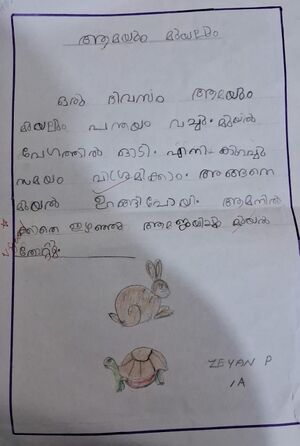 ആമയും മുയലും
ഒരു ദിവസം ആമയും
മുയലും പന്തയം വച്ചു. മുയൽ
വേഗത്തിൽ ഓടി. എന്നി കുറച്ചു
സമയം വിശ്രമിക്കാം. അങ്ങനെ
മുയൽ ഉറങ്ങിപോയി. ആമനിൽ
ക്കാതെ ഇഴഞ്ഞു ആമജയിച്ചു മുയൽ
തോറ്റു.
ZEYAN P
1A